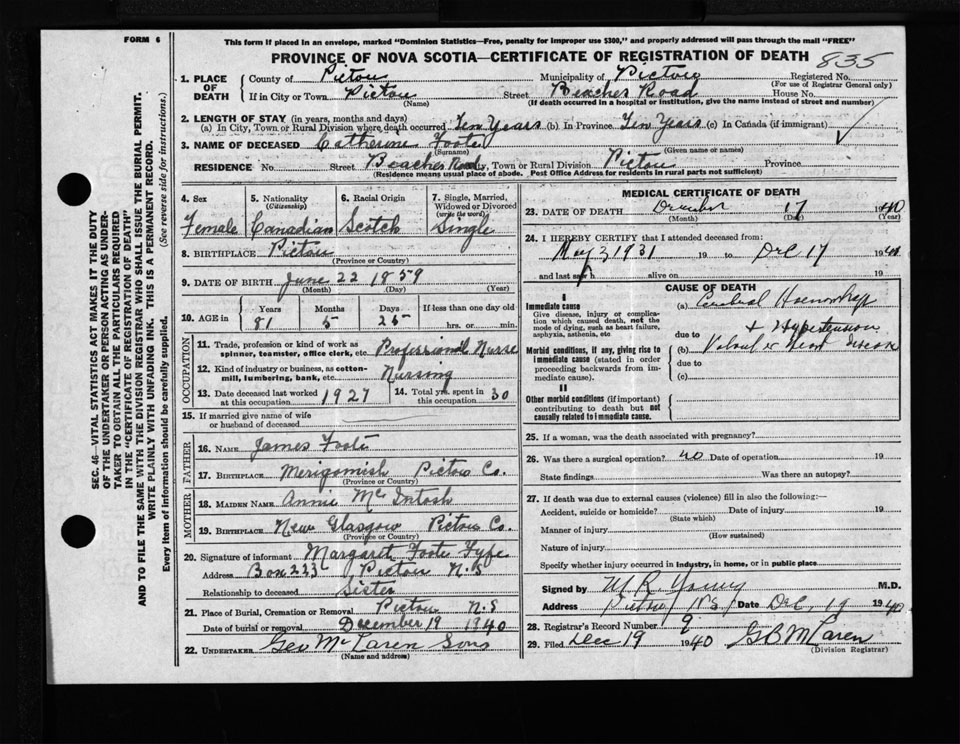 FORM 6
This form if placed in an envelope, marked "Dominion Statistics—Free, penalty for improper use $300," and properly addressed will pass through the mail "FREE"
PROVINCE OF NOVA SCOTIA—CERTIFICATE OF REGISTRATION OF DEATH 835
SEC. 46—VITAL STATISTICS ACT MAKES IT THE DUTY
OF THE UNDERTAKER OR PERSON ACTING AS UNDER-
TAKER TO OBTAIN ALL THE PARTICULARS REQUIRED
IN THE "CERTIFICATE OF REGISTRATION OF DEATH"
AND TO FILE THE SAME WITH THE DIVISION REGISTRAR WHO SHALL ISSUE THE BURIAL PERMIT.
WRITE PLAINLY WITH UNFADING INK. THIS IS A PERMANENT RECORD.
Every item of information should be carefully supplied. (See reverse side for instructions.)
1. PLACE OF DEATH
County of Pictou Municipality of Pictou Registered No.
(For use of Registrar General only)
If in City or Town Pictou Street Beaches Road House No.
(Name) (If death occurred in a hospital or institution, give the name instead of street and number)
2. LENGTH OF STAY (in years, months and days)
(a) In City, Town or Rural Division where death occurred Ten Years (b) In Province Ten Years (c) In Canada (if immigrant)
3. NAME OF DECEASED Catherine Foote
(Surname) (Given name or names)
RESIDENCE No. Street Beaches Road City, Town or Rural Division Pictou Province
(Residence means usual place of abode. Post Office Address for residents in rural parts not sufficient)
4. Sex Female
5. Nationality (Citizenship) Canadian
6. Racial Origin Scotch
7. Single, Married, Widowed or Divorced (write the word) Single
8. BIRTHPLACE Pictou
(Province or Country)
9. DATE OF BIRTH June 22 1859
(Month) (Day) (Year)
10. AGE in Years 81 Months 5 Days 25 If less than one day old hrs. or min.
OCCUPATION
11. Trade, profession or kind of work as spinner, teamster, office clerk, etc. Professional Nurse
12. Kind of industry or business, as cotton-mill, lumbering, bank, etc. Nursing
13. Date deceased last worked at this occupation 1927
14. Total yrs. spent in this occupation 30
15. If married give name of wife or husband of deceased
FATHER
16. NAME James Foote
17. BIRTHPLACE Merigomish Pictou Co.
(Province or Country)
MOTHER
18. MAIDEN NAME Annie McIntosh
19. BIRTHPLACE New Glasgow Pictou Co.
(Province or Country)
20. Signature of informant Margaret Foote Fyfe
Address Box 223 Pictou N.S
Relationship to deceased Sister
21. Place of Burial, Cremation or Removal Pictou N.S
Date of burial or removal December 19 1940
22. UNDERTAKER Geo McLaren Sons
(Name and address)
MEDICAL CERTIFICATE OF DEATH
23. DATE OF DEATH December 17 1940
(Month) (Day) (Year)
24. I HEREBY CERTIFY that I attended deceased from:
May 3, 1931 19 to Dec 17 1940
and last saw h alive on 19
CAUSE OF DEATH
I
Immediate cause
Give disease, injury or complication which caused death, not the mode of dying, such as heart failure, asphyxia, asthenia, etc
(a) Cerebral Haemorrhage
due to + Hypertension
Morbid conditions, if any, giving rise to immediate cause (stated in order proceeding backwards from immediate cause).
(b) Valvular heart disease
due to
(c)
II
Other morbid conditions (if important) contributing to death but not causally related to immediate cause.
25. If a woman, was the death associated with pregnancy?
26. Was there a surgical operation? no Date of operation 19
State findings Was there an autopsy?
27. If death was due to external causes (violence) fill in also the following:—
Accident, suicide or homicide? Date of injury 19
(State which)
Manner of injury
(How sustained)
Nature of injury
Specify whether injury occurred in industry, in home, or in public place
Signed by M R Young M.D.
Address Pictou N.S. Date Dec, 19 1940
28. Registrar's Record Number 9
29. Filed Dec 19 1940 G B McLaren
(Division Registrar)